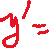 y' =